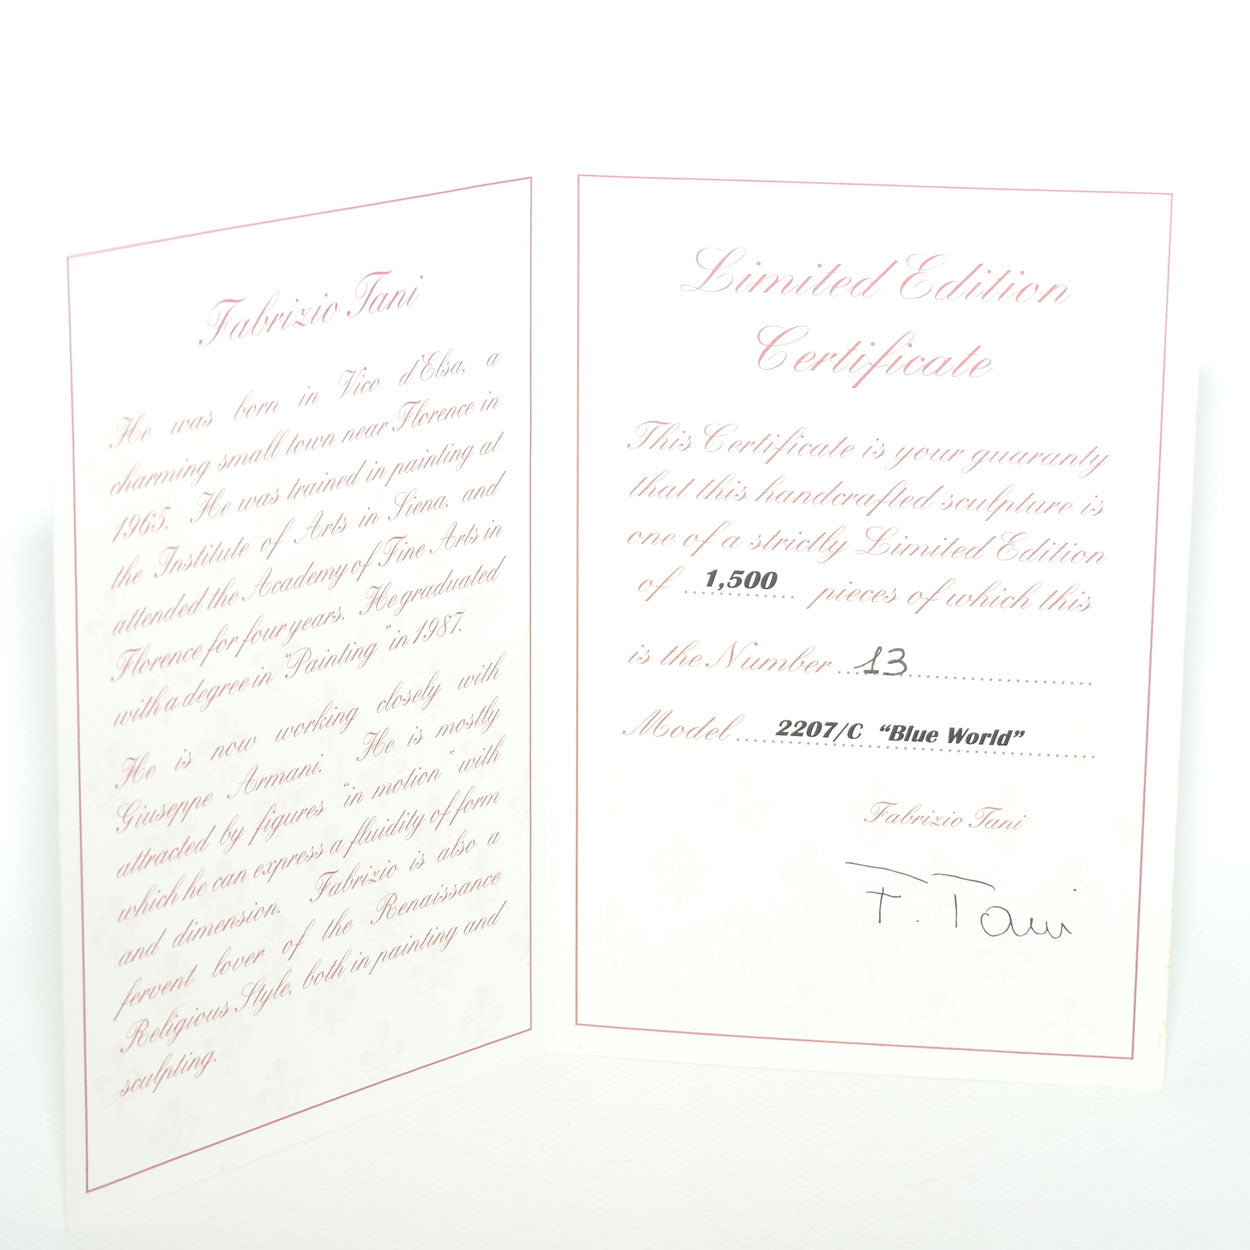 Fabrizio Tani
He was born in Vico d'Elsa, a
charming small town near Florence in
1965. He was trained in painting at
the Institute of Arts in Siena, and
attended the Academy of Fine Arts in
Florence for four years. He graduated
with a degree in "Painting" in 1987.
He is now working closely with
Giuseppe Armani. He is mostly
attracted by figures "in motion" with
which he can express a fluidity of form
and dimension. Fabrizio is also a
fervent lover of the Renaissance
Religious Style, both in painting and
sculpting.
Limited Edition
Certificate
This Certificate is your guaranty
that this handcrafted sculpture is
one of a strictly Limited Edition
of 1,500 pieces of which this
is the Number 13
Model 2207/C "Blue World"
Fabrizio Tani
F. Tani